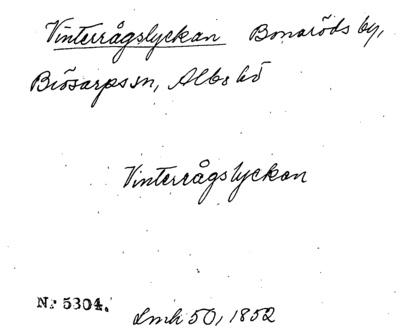 Vinterrågslyckan Bonaröds by,
Biösarps sn, Albo hd
Vinterrågslyckan
Nr 5304.
Lmh 50, 1852